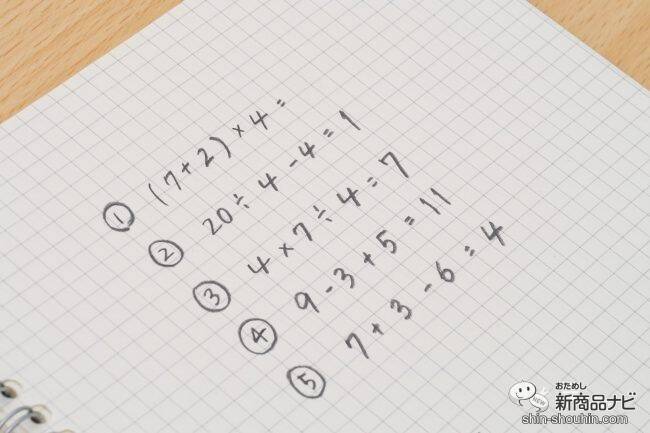 ① (7+2)×4=
② 20÷4-4=1
③ 4×7÷4=7
④ 9-3+5=11
⑤ 7+3-6=4
おためし
新商品ナビ
NEW
shin-shouhin.com